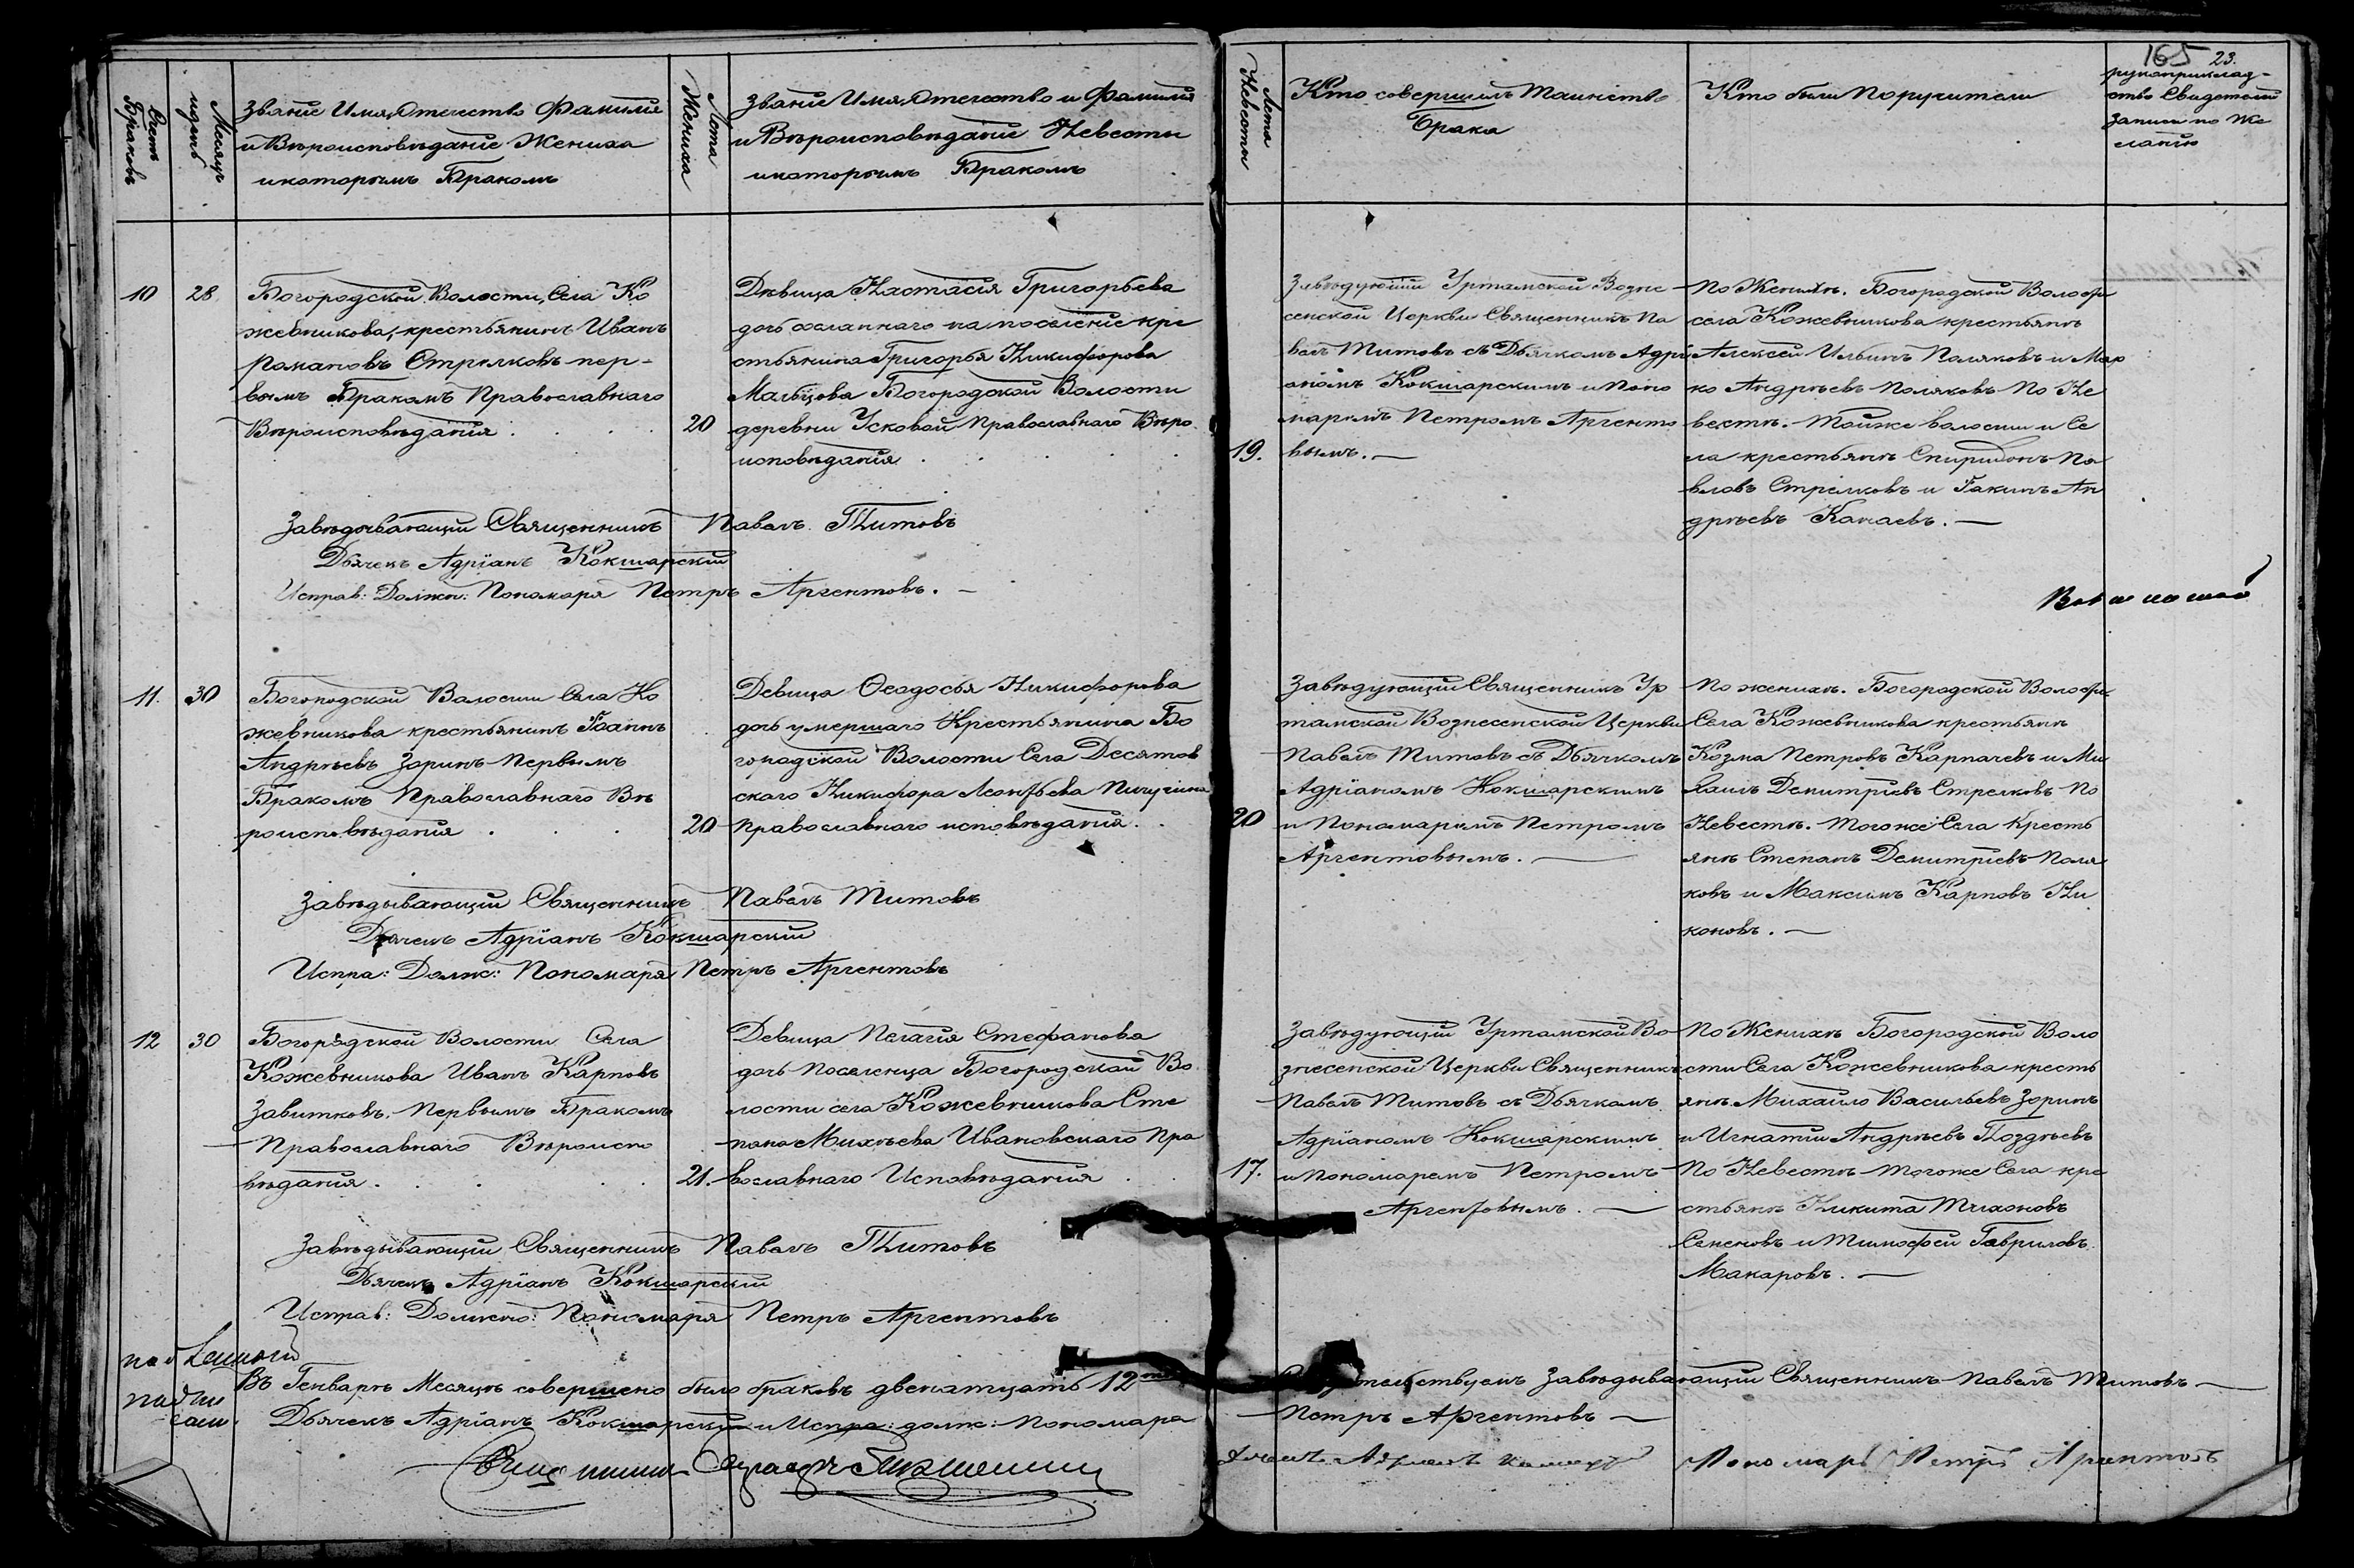 165 23.
Счетъ Браковъ
Месяцъ и день
Званіе Имя, Отчество Фамиліе
и Вѣроисповѣданіе Жениха
и которымъ Бракомъ
Лета Жениха
Званіе Имя, Отчество и Фамилія
и Вѣроисповѣданіе Невесты
и которымъ Бракомъ
Лета Невесты
Кто совершилъ Таинство
Брака
Кто были Поручители
рукоприклад-
ство Свидетелей
записи по же
ланію
10
28
Богородской Волости, Села Ко
жевникова, крестьянинъ Иванъ
Романовъ Стрелковъ пер-
вымъ Бракомъ Православнаго
Вѣроисповѣданія
20
Дѣвица Настасія Григорьева
дочь сосланнаго на поселеніе кре
стьянина Григорья Никифорова
Мальцова Богородской Волости
деревни Усковой Православнаго Вѣро
исповѣданія
19.
Завѣдующій Уртамской Возне
сенской Церкви Священникъ Па
велъ Титовъ съ Дьячкомъ Адрі
аномъ Кокшарскимъ и Поно
маремъ Петромъ Аргенто
вымъ.—
По Женихѣ. Богородской Волости
села Кожевникова крестьянѣ
Алексей Ильинъ Поляковъ и Мар
ко Андрѣевъ Поляковъ По Не
вестѣ. Тойже волости и Се
ла крестьянѣ Спиридонъ Па
вловъ Стрелковъ и Іакимъ Ан
дрѣевъ Канаевъ.—
Завѣдывающій Священникъ Павелъ Титовъ
Дьячекъ Адріанъ Кокшарскій
Исправ: Должн: Пономаря Петръ Аргентовъ.—
11.
30
Богородской Волости Села Ко
жевникова крестьянинъ Іоаннъ
Андрѣевъ Зоринъ Первымъ
Бракомъ Православнаго Вѣ
роисповѣданія
20
Девица Феодосья Никифорова
дочь умершаго Крестьянина Бо
городской Волости Села Десятов
скаго Никифора Леонтьева Пичугина
православнаго исповѣданія.
20
Завѣдующій Священникъ Ур
тамской Вознесенской Церкви
Павелъ Титовъ съ Дьячкомъ
Адріаномъ Кокшарскимъ
и Пономаремъ Петромъ
Аргентовымъ.—
По женихѣ. Богородской Волости
Села Кожевникова крестьянѣ
Козма Петровъ Карпачевъ и Ми
хаилъ Демитріевъ Стрелковъ По
Невестѣ. Тогоже Села Кресть
янѣ Степанъ Демитріевъ Поля
ковъ и Максимъ Карповъ Ни
коновъ.—
Завѣдывающій Священникъ Павелъ Титовъ
Дьячекъ Адріанъ Кокшарскій
Испра: Долж: Пономаря Петръ Аргентовъ
12
30
Богородской Волости Села
Кожевникова Иванъ Карповъ
Завитковъ. Первымъ Бракомъ
Православнаго Вѣроиспо
вѣданія.
21.
Девица Пелагія Стефанова
дочь Поселенца Богородской Во
лости села Кожевникова Сте
пана Михѣева Ивановскаго Пра
вославнаго Исповѣданія
17.
Завѣдующій Уртамской Во
знесенской Церкви Священникъ
Павелъ Титовъ съ Дьячкомъ
Адріаномъ Кокшарскимъ
и Пономаремъ Петромъ
Аргентовымъ.—
По Женихѣ Богородской Воло
сти Села Кожевникова кресть
янѣ Михайло Васильевъ Зоринъ
и Игнатій Андрѣевъ Поздѣевъ
По Невестѣ Тогоже Села кре
стьянѣ Никита Тихоновъ
Семеновъ и Тимофей Гавриловъ
Макаровъ.—
Завѣдывающій Священникъ Павелъ Титовъ
Дьячекъ Адріанъ Кокшарскій
Исправ: Должно: Пономаря Петръ Аргентовъ
Въ Генварѣ Месяцѣ совершено было браковъ двенатцать 12
Свидетельствуемъ Завѣдывающій Священникъ Павелъ Титовъ—
Дьячекъ Адріанъ Кокшарскій и Испра: долж: Пономаря
Петръ Аргентовъ—
Пономарь Петръ Аргентовъ